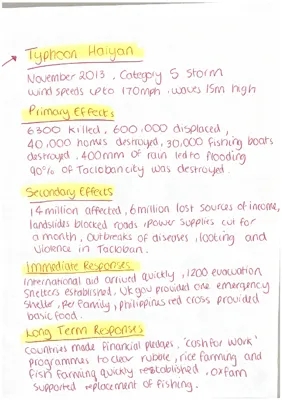 Typhoon Haiyan
November 2013, Category 5 Storm
wind speeds upto 170mph, waves 15m high
Primary Effects
6300 killed, 600,000 displaced,
40,000 homes destroyed, 30,000 fishing boats
destroyed, 400mm of rain led to flooding
90% of Tacloban city was destroyed.
Secondary Effects
14 million affected, 6 million lost sources of income,
landslides blocked roads, power supplies cut for
a month, outbreaks of diseases, looting and
violence in Tacloban.
Immediate Responses
International aid arrived quickly, 1200 evacuation
shelters established. UK gov provided one emergency
shelter per family, philippines red cross provided
basic food.
Long Term Responses
Countries made financial pledges, 'cash for work'
programmes to clear rubble, rice farming and
fish farming quickly established, oxfam
supported replacement of fishing.